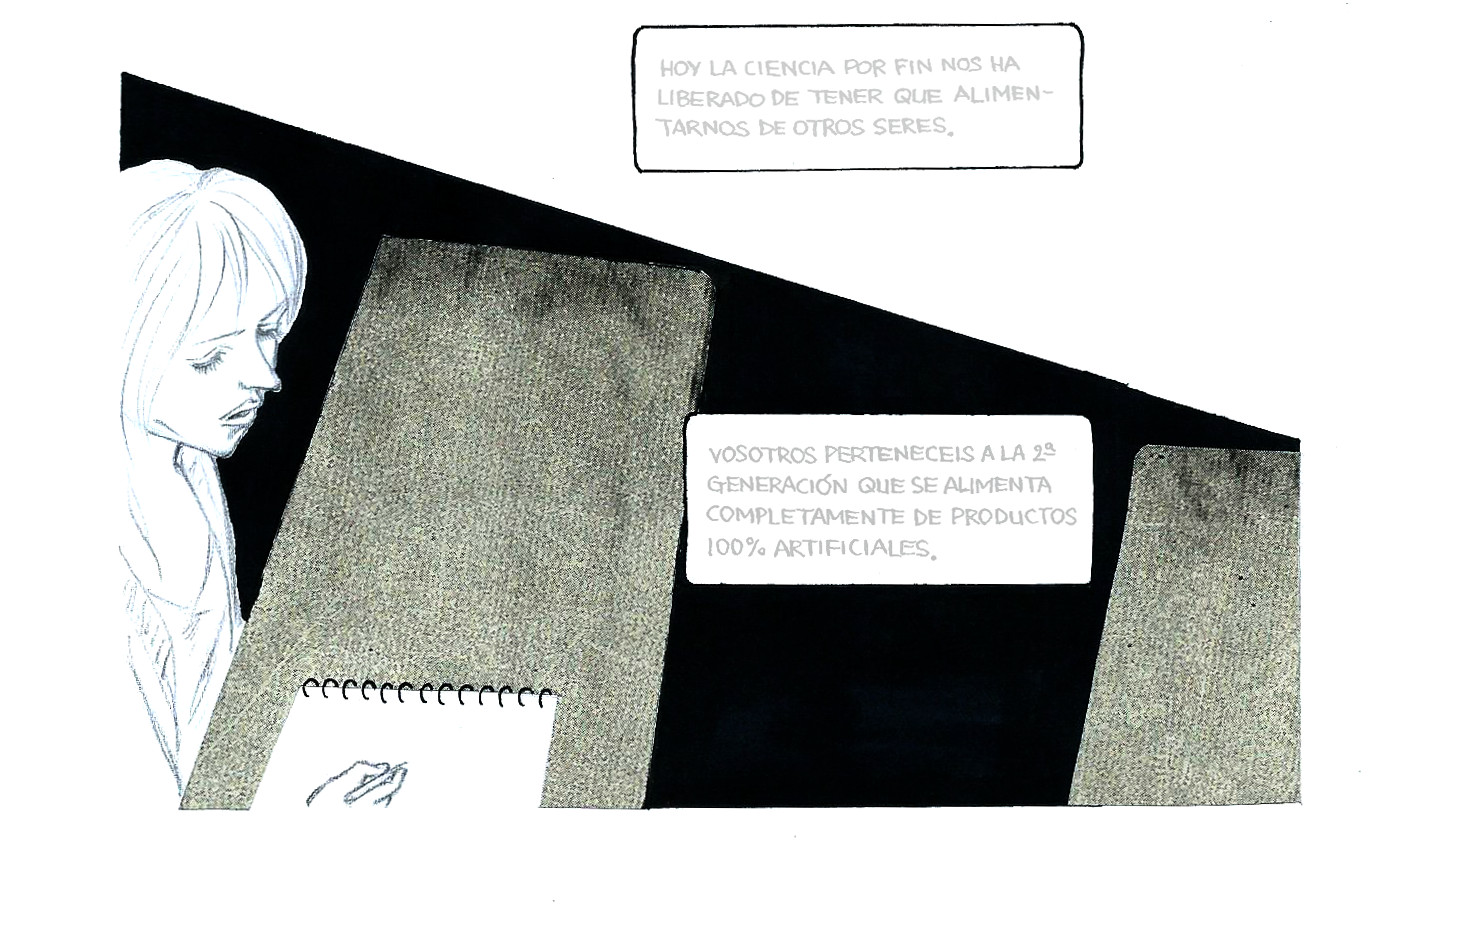 HOY LA CIENCIA POR FIN NOS HA
LIBERADO DE TENER QUE ALIMEN-
TARNOS DE OTROS SERES.
VOSOTROS PERTENECEIS A LA 2ª
GENERACIÓN QUE SE ALIMENTA
COMPLETAMENTE DE PRODUCTOS
100% ARTIFICIALES.